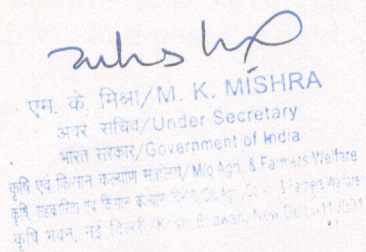 एम. के. मिश्रा/M. K. MISHRA
अवर सचिव/Under Secretary
भारत सरकार/Government of India
कृषि एवं किसान कल्याण मंत्रालय/M/o Agri. & Farmers Welfare
कृषि सहकारिता एवं किसान कल्याण विभाग/ & Farmers Welfare
कृषि भवन, नई दिल्ली/Krishi Bhawan, New Delhi-110001